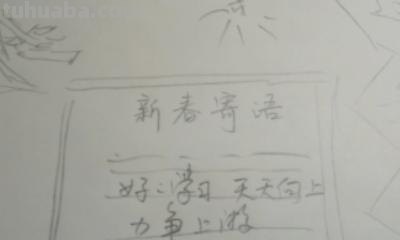 tuhuaba.com
新春寄语
好:学习 天天向上
力争上游